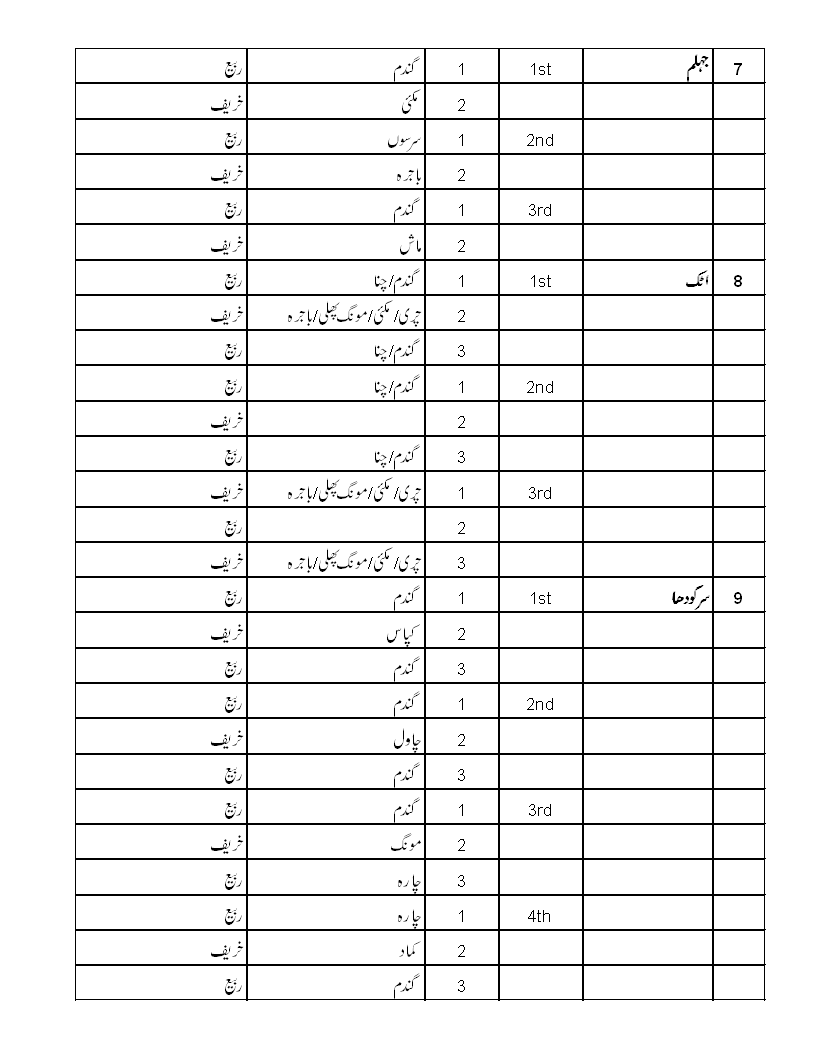 7 جہلم 1st 1 گندم ربیع
2 مکئی خریف
2nd 1 سرسوں ربیع
2 باجرہ خریف
3rd 1 گندم ربیع
2 ماش خریف
8 اٹک 1st 1 گندم/چنا ربیع
2 چری/مکئی/مونگ پھلی/باجرہ خریف
3 گندم/چنا ربیع
2nd 1 گندم/چنا ربیع
2 خریف
3 گندم/چنا ربیع
3rd 1 چری/مکئی/مونگ پھلی/باجرہ خریف
2 ربیع
3 چری/مکئی/مونگ پھلی/باجرہ خریف
9 سرگودھا 1st 1 گندم ربیع
2 کپاس خریف
3 گندم ربیع
2nd 1 گندم ربیع
2 چاول خریف
3 گندم ربیع
3rd 1 گندم ربیع
2 مونگ خریف
3 چارہ ربیع
4th 1 چارہ ربیع
2 کماد خریف
3 گندم ربیع